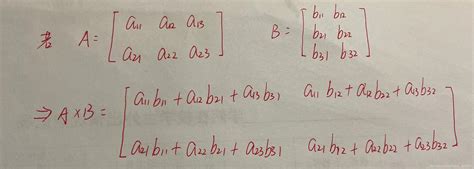 若 A = [ a₁₁ a₁₂ a₁₃
a₂₁ a₂₂ a₂₃ ]
B = [ b₁₁ b₁₂
b₂₁ b₂₂
b₃₁ b₃₂ ]
⇒ A×B = [ a₁₁b₁₁ + a₁₂b₂₁ + a₁₃b₃₁ a₁₁b₁₂ + a₁₂b₂₂ + a₁₃b₃₂
a₂₁b₁₁ + a₂₂b₂₁ + a₂₃b₃₁ a₂₁b₁₂ + a₂₂b₂₂ + a₂₃b₃₂ ]